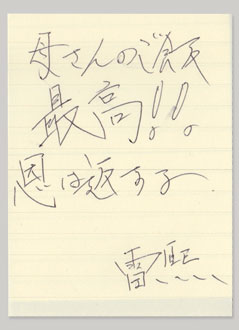 母さんのご飯
最高!!
恩は返すよ
雷熙